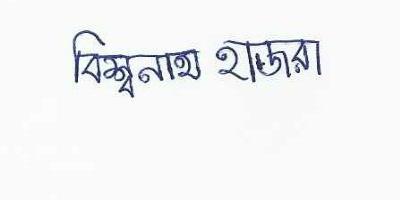 বিশ্বনাথ হাজরা